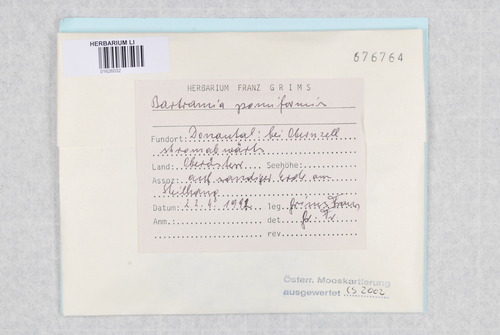 HERBARIUM LI
01626032
676764
HERBARIUM FRANZ GRIMS
Bartramia pomiformis
Fundort: Donautal: bei Obernzell
stromabwärts
Land: Oberöster. Seehöhe:
Assoz: auf sandiger Erde am
Steilhang
Datum: 22.4.1982 leg. Grims Franz
Anm.: det Gr. Fr.
rev.
Österr. Mooskartierung
ausgewertet CS 2002